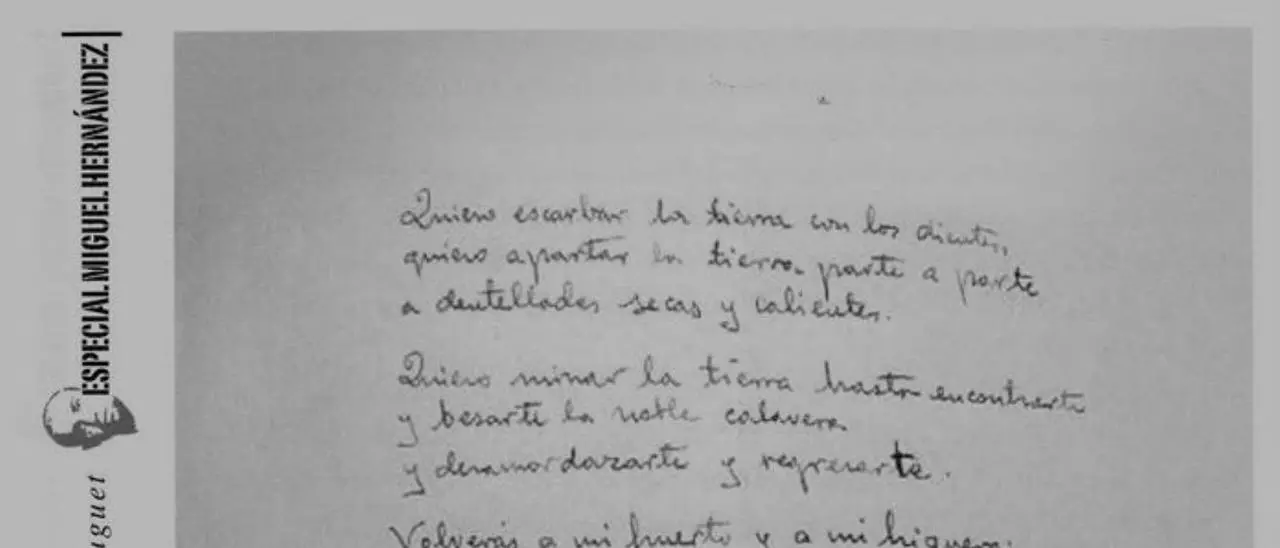 ESPECIALMIGUELHERNÁNDEZ
uguet
Quiero escarbar la tierra con los dientes,
quiero apartar la tierra parte a parte
a dentelladas secas y calientes.
Quiero minar la tierra hasta encontrarte
y besarte la noble calavera
y desamordazarte y regresarte.
Volverás a mi huerto y a mi higuera: